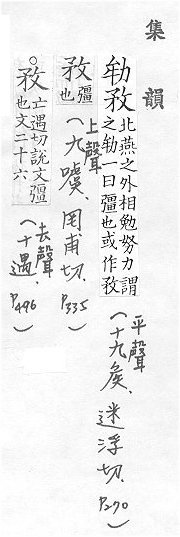 集韻
勄敄北燕之外相勉努力謂
之勄一曰彊也或作敄
平聲
(十九矦、迷浮切、P270)
敄彊
也
上聲
(九噳、罔甫切、P335)
敄亡遇切說文彊
也文二十六
去聲
(十遇、P496)